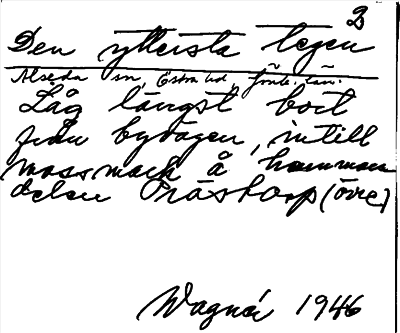 2
Den ytterste tegen
Alseda sn Östra hd Jönk. län.
Låg längst bort
från byvägen, intill
mossmark å hemman
delen Prästorp (övre)
Wagnér 1946